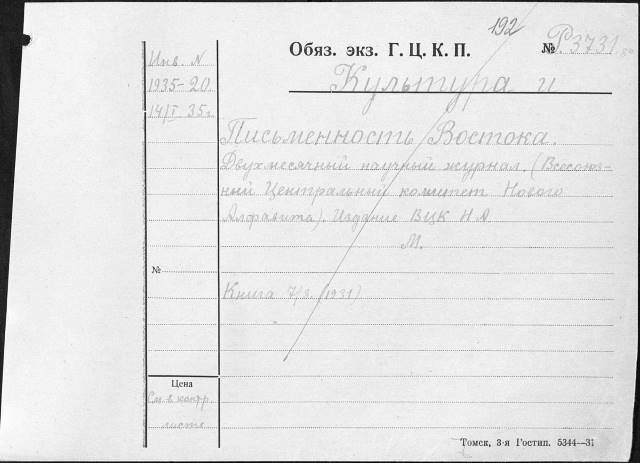 192
Обяз. экз. Г. Ц. К. П. № Р. 3731
Инв. N
1935-20.
14/I 35г.
Культура и
Письменность Востока.
Двухмесячный научный журнал. (Всесоюз-
ный Центральный комитет Нового
Алфавита). Издание ВЦК НА
М.
№
Книга 7/8. (1931)
Цена
См. в контр.
листе
Томск, 3-я Гостип. 5344—31